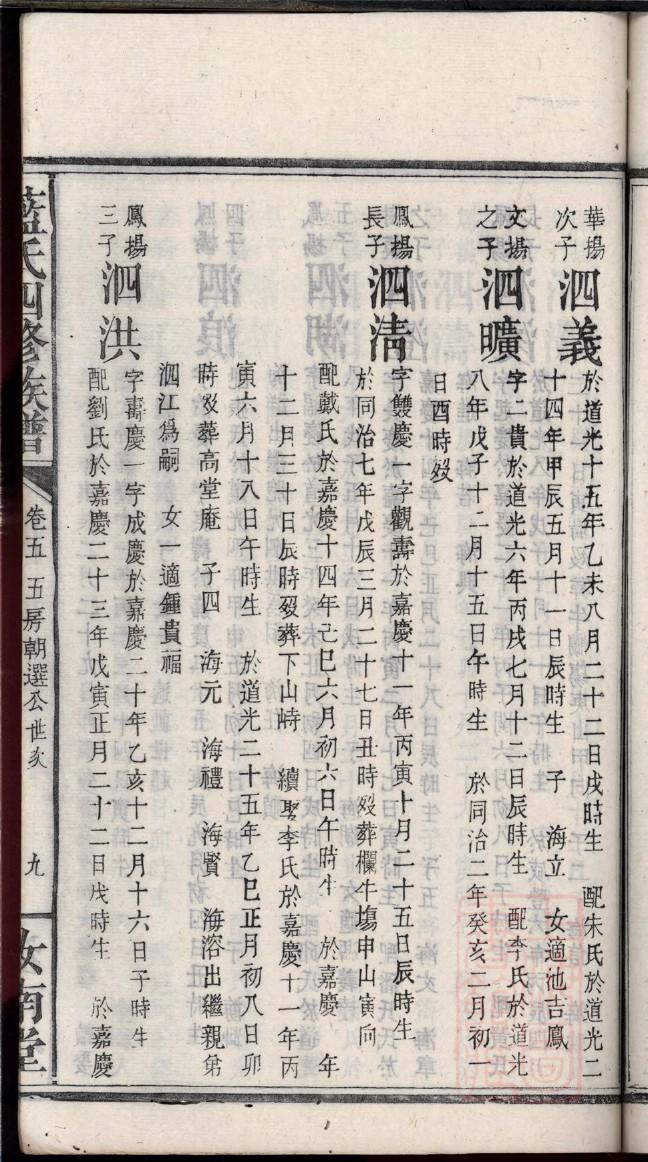 華揚次子 泗義 於道光十五年乙未八月二十二日戌時生 配朱氏於道光二
十四年甲辰五月十一日辰時生 子 海立 女適池吉鳳
文揚之子 泗曠 字二貴於道光六年丙戌七月十二日辰時生 配李氏於道光
八年戊子十二月十五日午時生 於同治二年癸亥二月初一
日酉時歿
鳳揚長子 泗清 字雙慶一字觀壽於嘉慶十一年丙寅十月二十五日辰時生
於同治七年戊辰三月二十七日丑時歿葬欄牛塲申山寅向
配戴氏於嘉慶十四年己巳六月初六日午時生 於嘉慶 年
十二月三十日辰時歿葬下山峙 續娶李氏於嘉慶十一年丙
寅六月十八日午時生 於道光二十五年乙巳正月初八日卯
時歿葬高堂庵 子四 海元 海禮 海賢 海溶出繼親弟
泗江爲嗣 女一適鍾貴福
鳳揚三子 泗洪 字壽慶一字成慶於嘉慶二十年乙亥十二月十六日子時生
配劉氏於嘉慶二十三年戊寅正月二十二日戌時生 於嘉慶
藍氏四修族譜 卷五 五房朝選公世系 九 汝南堂